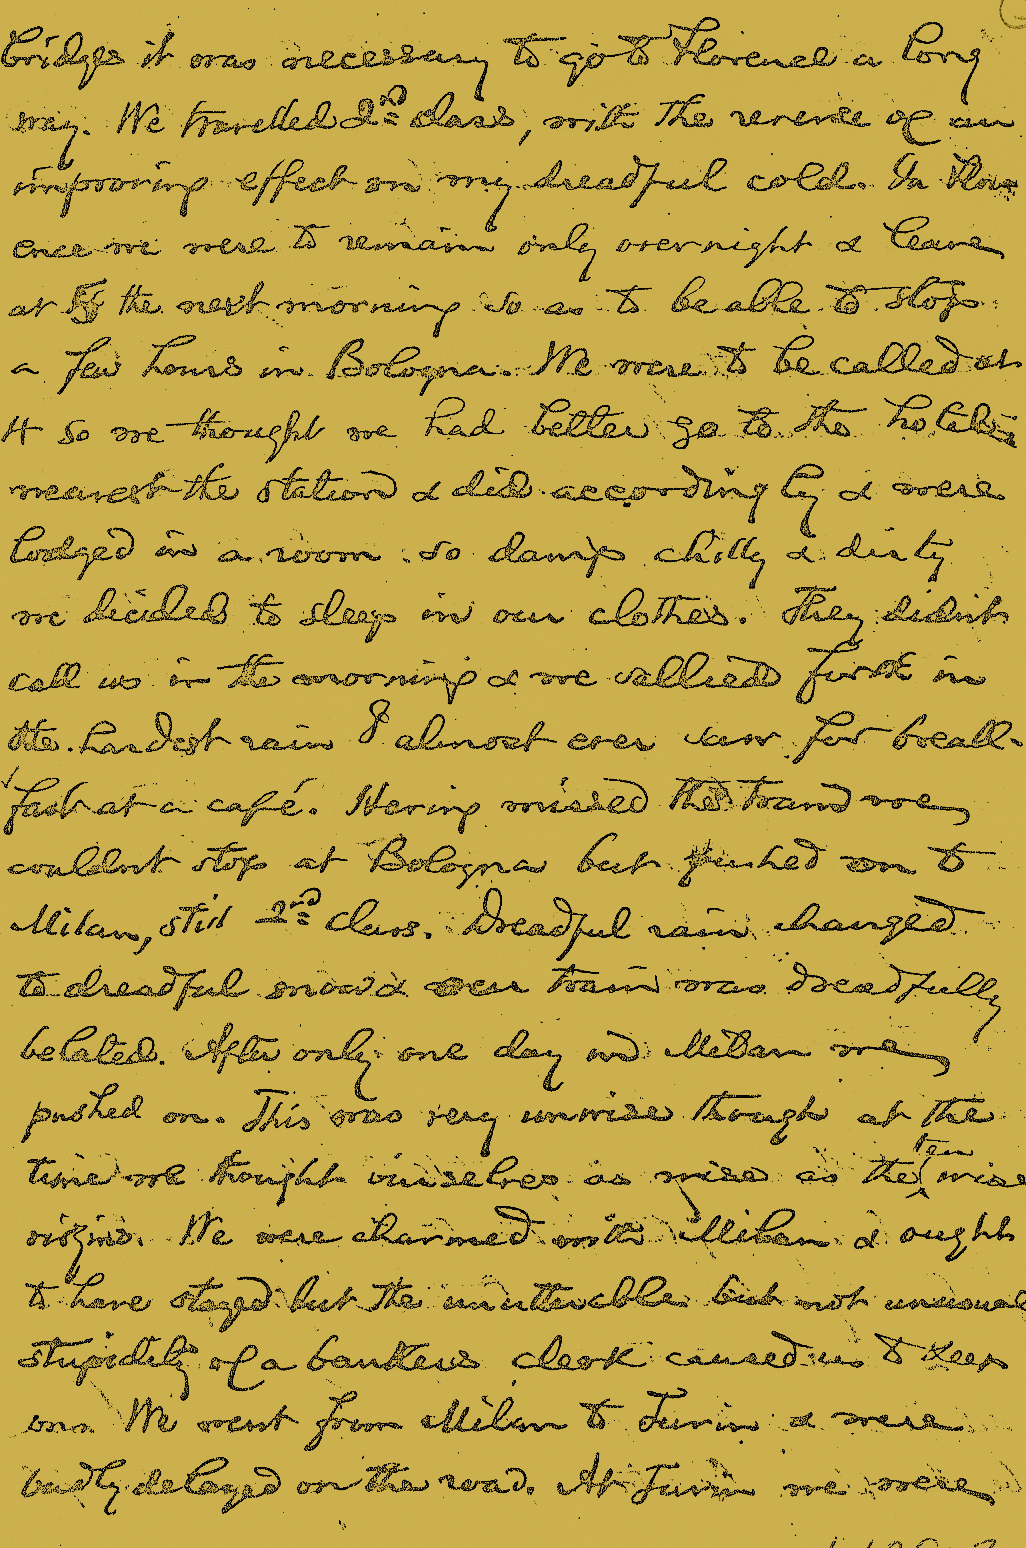 bridges it was necessary to go to Florence a long
way. We travelled 2nd class, with the reverse of an
improving effect on my dreadful cold. In Flor
ence we were to remain only overnight & leave
at 5 the next morning so as to be able to stop
a few hours in Bologna. We were to be called at
4 so we thought we had better go to the hotel
nearest the station & did accordingly & were
lodged in a room so damp chilly & dirty
we decided to sleep in our clothes. They didn't
call us in the morning & we sallied forth in
the hardest rain I almost ever saw for break-
fast at a café. Having missed the train we
couldnt stop at Bologna but pushed on to
Milan, still 2nd class. Dreadful rain changed
to dreadful snow & our train was dreadfully
belated. After only one day in Milan we
pushed on. This was very unwise though at the
time we thought ourselves as wise as the ten wise
virgins. We were charmed with Milan & ought
to have stayed but the unutterable but not unusual
stupidity of a banker's clerk caused us to keep
on. We went from Milan to Turin & were
badly delayed on the road. At Turin we were